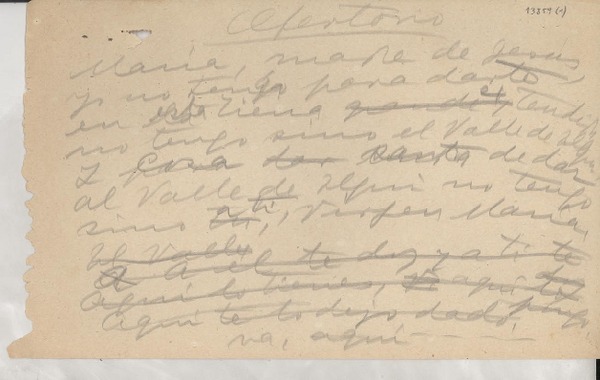 13859 (1)
Ofertorio
María, madre de Jesús,
yo no tengo para darte
en esta tierra grande,
no tengo sino el Valle de Elqui
Y para dar de dar
al Valle de Elqui no tengo
sino a ti, Virgen María.
El Valle
A Él te doy y a ti te doy
Aquí lo tienes, aquí
Aquí te lo dejo dado,
va, aquí